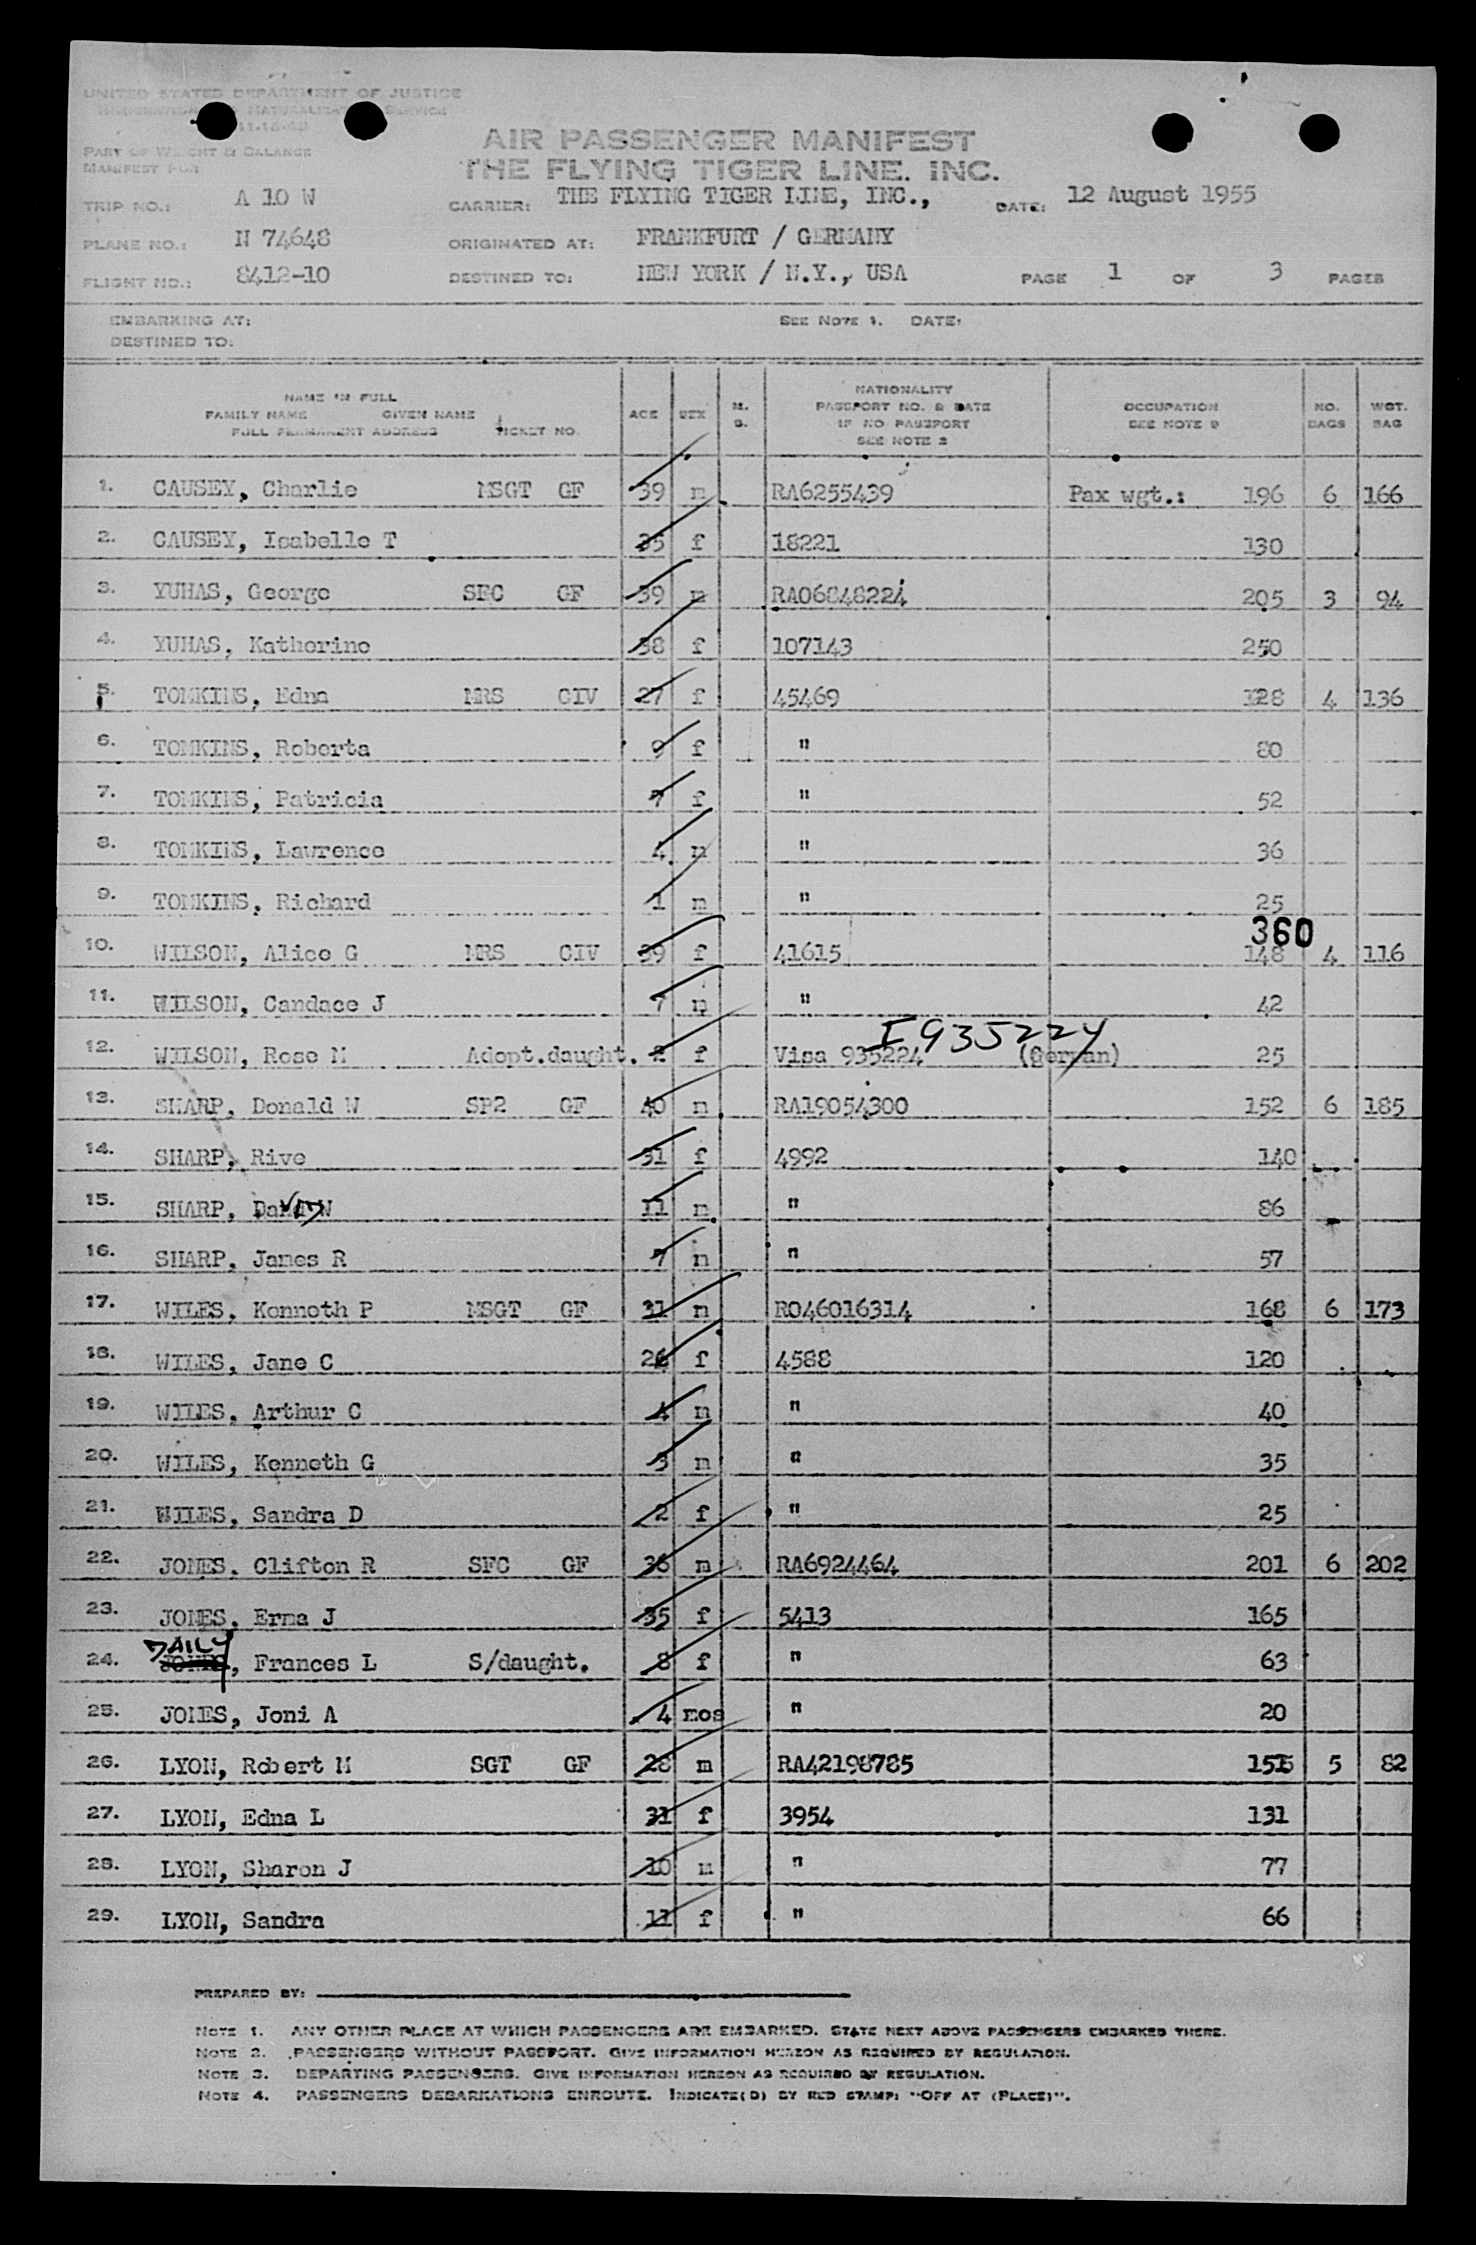 UNITED STATES DEPARTMENT OF JUSTICE
PART OF WEIGHT & BALANCE
MANIFEST FOR
AIR PASSENGER MANIFEST
THE FLYING TIGER LINE. INC.
TRIP NO.: A 10 W CARRIER: THE FLYING TIGER LINE, INC., DATE: 12 August 1955
PLANE NO.: N 74648 ORIGINATED AT: FRANKFURT / GERMANY
FLIGHT NO.: 8412-10 DESTINED TO: NEW YORK / N.Y., USA PAGE 1 OF 3 PAGES
EMBARKING AT: SEE NOTE 1. DATE:
DESTINED TO:
NAME IN FULL
FAMILY NAME GIVEN NAME
FULL PERMANENT ADDRESS TICKET NO.
AGE SEX M. S.
NATIONALITY
PASSPORT NO. & DATE
IF NO PASSPORT
SEE NOTE 2
OCCUPATION
SEE NOTE 3
NO. BAGS
WGT. BAG
1. CAUSEY, Charlie MSGT GF 39 m RA6255439 Pax wgt.: 196 6 166
2. CAUSEY, Isabelle T 35 f 18221 130
3. YUHAS, George SFC GF 39 m RA06848224 205 3 94
4. YUHAS, Katherine 38 f 107143 250
5. TOMKINS, Edna MRS CIV 27 f 45469 128 4 136
6. TOMKINS, Roberta 9 f " 80
7. TOMKINS, Patricia 7 f " 52
8. TOMKINS, Lawrence 4 m " 36
9. TOMKINS, Richard 1 m " 25
360
10. WILSON, Alice G MRS CIV 39 f 41615 148 4 116
11. WILSON, Candace J 7 m " 42
I 935224
12. WILSON, Rose M Adopt.daught. 2 f Visa 935224 (German) 25
13. SHARP, Donald W SP2 GF 40 m RA19054300 152 6 185
14. SHARP, Rive 31 f 4992 140
15. SHARP, David W 11 m " 86
16. SHARP, James R 7 m " 57
17. WILES, Kenneth P MSGT GF 31 m RO46016314 168 6 173
18. WILES, Jane C 26 f 4588 120
19. WILES, Arthur C 4 m " 40
20. WILES, Kenneth G 3 m " 35
21. WILES, Sandra D 2 f " 25
22. JONES, Clifton R SFC GF 36 m RA6924464 201 6 202
23. JONES, Erma J 35 f 5413 165
DAILY
24. JONES, Frances L S/daught. 8 f " 63
25. JONES, Joni A 4 mos " 20
26. LYON, Robert M SGT GF 28 m RA42198785 5 82
27. LYON, Edna L 31 f 3954 131
28. LYON, Sharon J 10 m " 77
29. LYON, Sandra 11 f " 66
PREPARED BY:
NOTE 1. ANY OTHER PLACE AT WHICH PASSENGERS ARE EMBARKED. STATE NEXT ABOVE PASSENGERS EMBARKED THERE.
NOTE 2. PASSENGERS WITHOUT PASSPORT. GIVE INFORMATION HEREON AS REQUIRED BY REGULATION.
NOTE 3. DEPARTING PASSENGERS. GIVE INFORMATION HEREON AS REQUIRED BY REGULATION.
NOTE 4. PASSENGERS DEBARKATIONS ENROUTE. INDICATE(D) BY RED STAMP: "OFF AT (PLACE)".